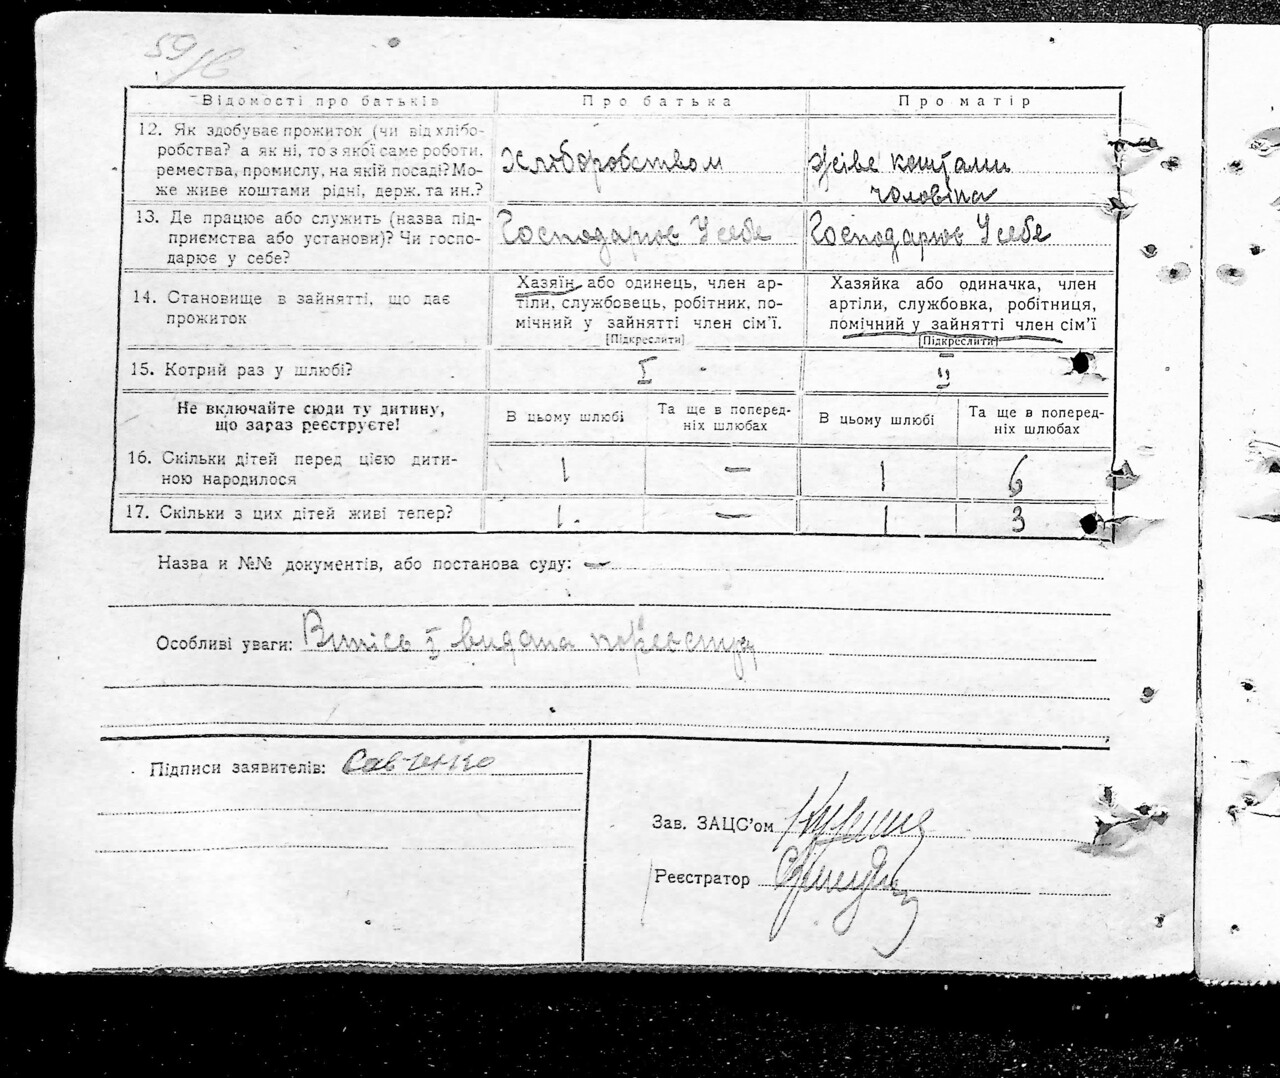 59/в
Відомості про батьків Про батька Про матір
12. Як здобуває прожиток (чи від хлібо-
робства? а як ні, то з якої саме роботи,
ремества, промислу, на якій посаді? Мо-
же живе коштами рідні, держ. та ин.?
Хліборобством
Живе коштами
чоловіка
13. Де працює або служить (назва під-
приємства або установи)? Чи госпо-
дарює у себе?
Господарює У себе
Господарює У себе
14. Становище в зайнятті, що дає
прожиток
Хазяїн, або одинець, член ар-
тіли, службовець, робітник, по-
мічний у зайнятті член сім'ї.
[Підкреслити]
Хазяйка або одиначка, член
артіли, службовка, робітниця,
помічний у зайнятті член сім'ї
[Підкреслити]
15. Котрий раз у шлюбі? I II
Не включайте сюди ту дитину,
що зараз реєструєте!
В цьому шлюбі
Та ще в поперед-
ніх шлюбах
В цьому шлюбі
Та ще в поперед-
ніх шлюбах
16. Скільки дітей перед цією дити-
ною народилося
1 — 1 6
17. Скільки з цих дітей живі тепер? 1. — 1 3
Назва и №№ документів, або постанова суду: —
Особливі уваги: Випись I видана
Підписи заявителів: Савченко
Зав. ЗАЦС'ом
Реєстратор